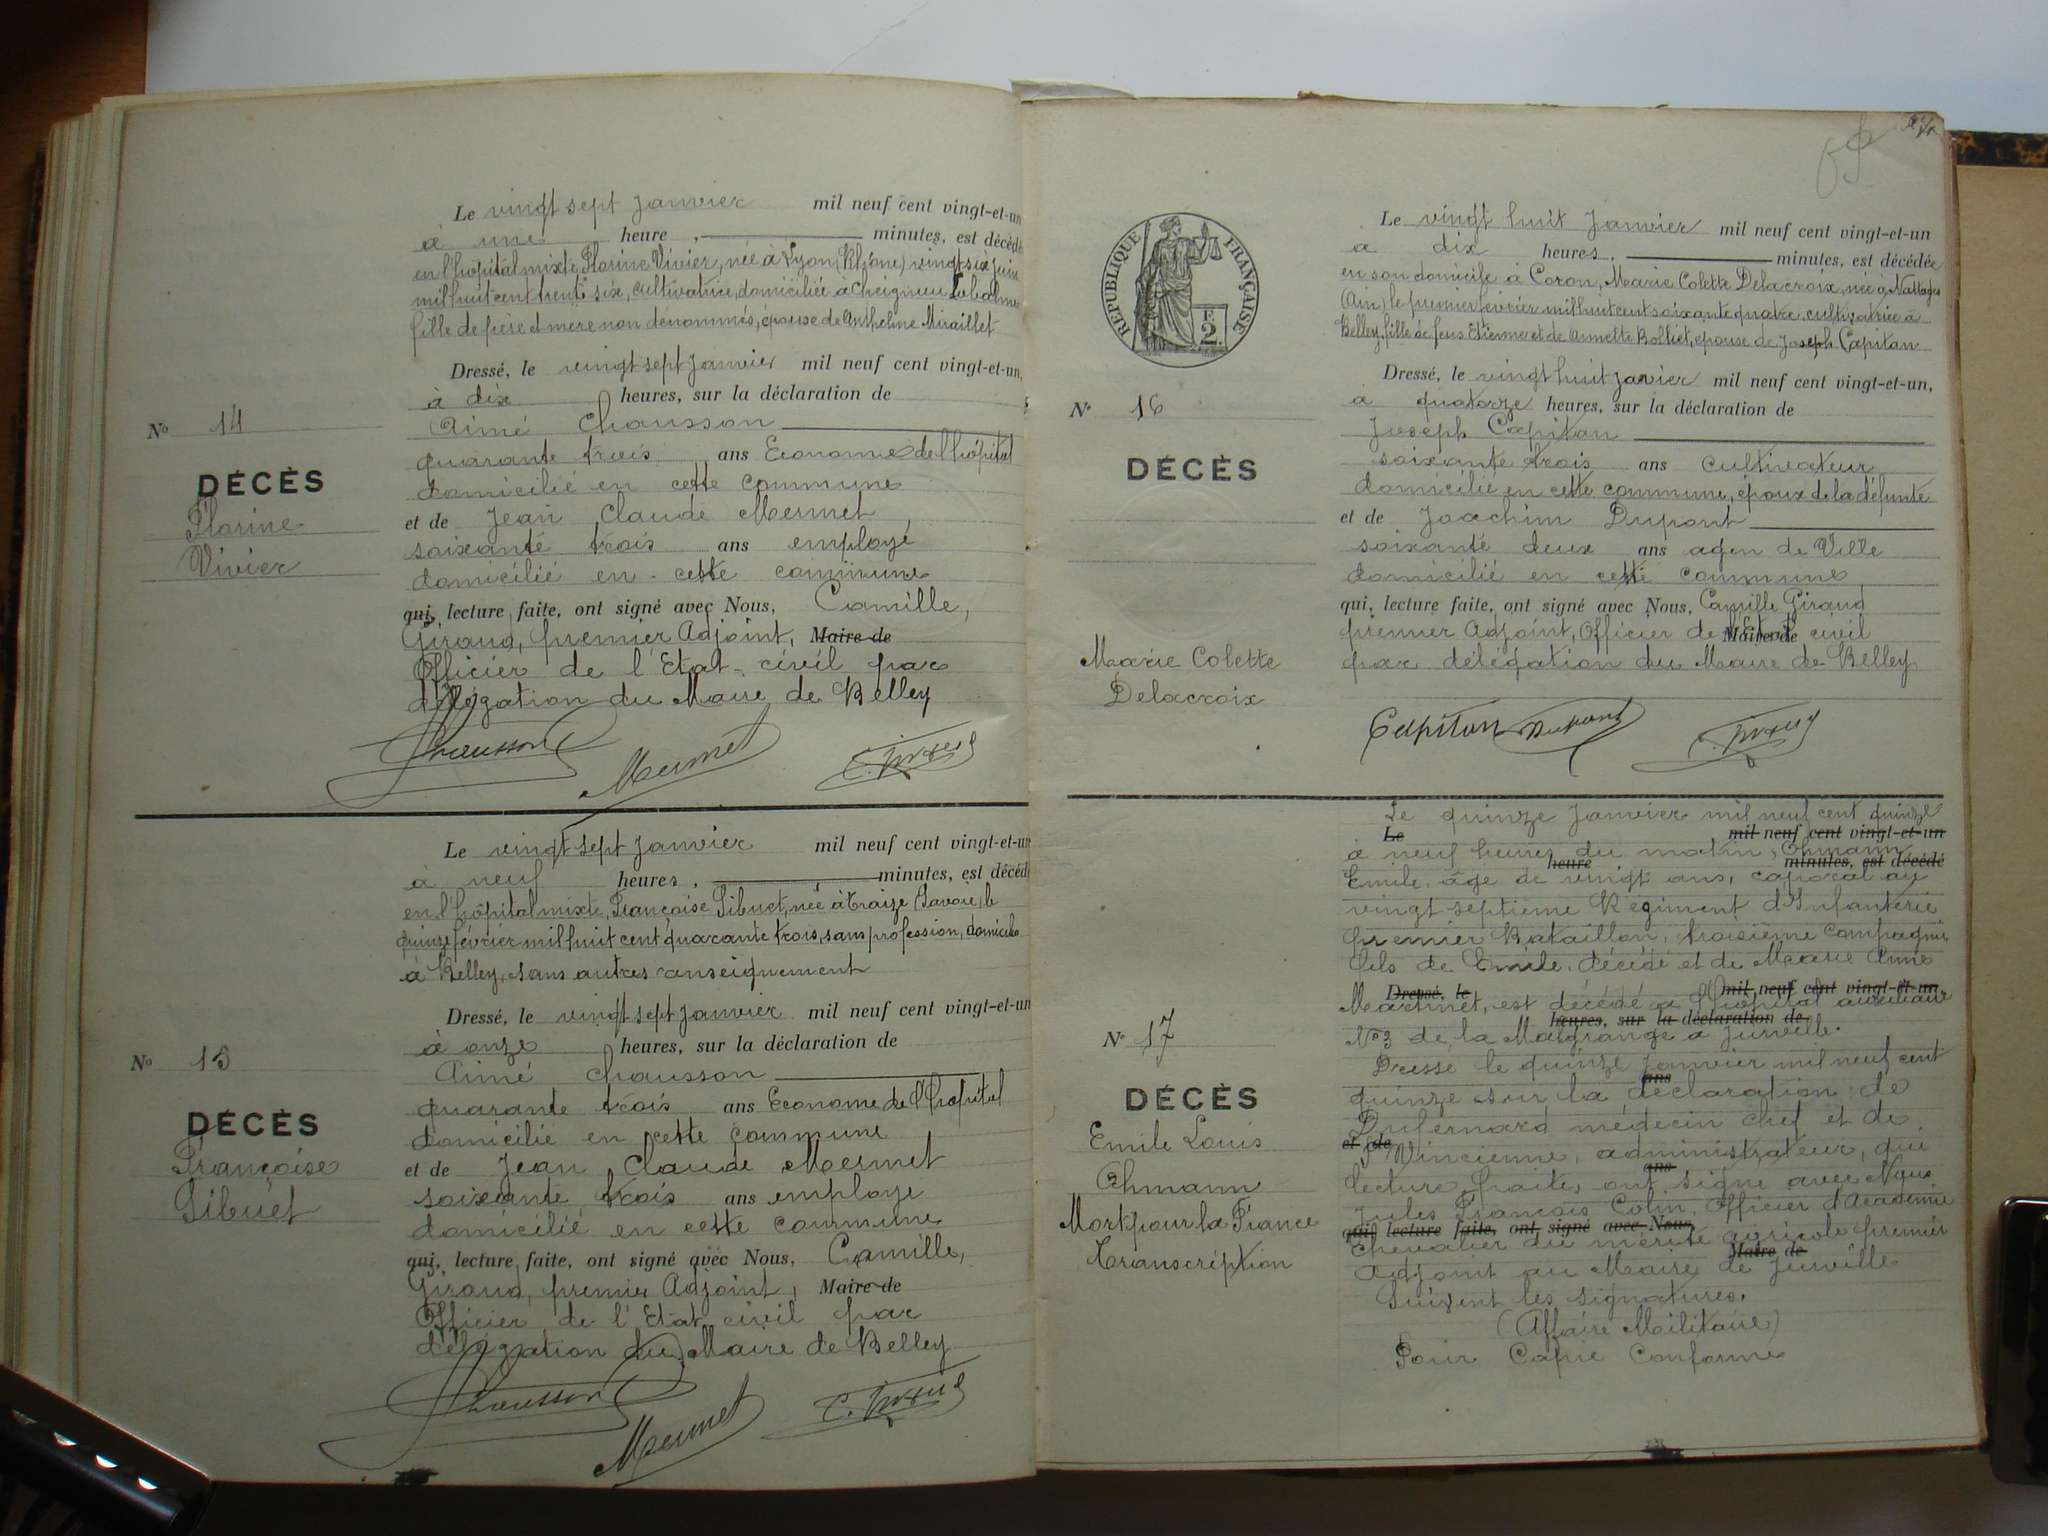 Le vingt sept janvier mil neuf cent vingt-et-un
à une heure , minutes, est décédée
en l'hôpital mixte Florine Vivier, née à Lyon (Rhône) vingt-six juin
mil huit cent trente six, cultivatrice, domiciliée à Cheignieu Labalme
fille de père et mère non dénommés, épouse de Anthelme Miraillet
Dressé, le vingt sept janvier mil neuf cent vingt-et-un,
à dix heures, sur la déclaration de
Aimé Chausson
quarante trois ans Econome de l'hôpital
domicilié en cette commune
et de Jean Claude Mermet
soixante trois ans employé
domicilié en cette commune
qui, lecture faite, ont signé avec Nous, Camille,
Giraud, premier Adjoint, Maire de
Officier de l'Etat-civil par
délégation du Maire de Belley
Chausson Mermet C. Giraud
N° 14
DÉCÈS
Florine
Vivier
Le vingt sept janvier mil neuf cent vingt-et-un
à neuf heures , minutes, est décédé
en l'hôpital mixte, Françoise Sibuet, née à Traize (Savoie), le
quinze février mil huit cent quarante trois, sans profession, domicilée
à Belley, sans autres renseignement
Dressé, le vingt sept janvier mil neuf cent vingt-et-un
à onze heures, sur la déclaration de
Aimé Chausson
quarante trois ans Econome de l'hôpital
domicilié en cette commune
et de Jean Claude Mermet
soixante trois ans employé
domicilié en cette commune
qui, lecture faite, ont signé avec Nous, Camille,
Giraud, premier Adjoint, Maire de
Officier de l'Etat civil par
délégation du Maire de Belley
Chausson Mermet C. Giraud
N° 15
DÉCÈS
Françoise
Sibuet
RÉPUBLIQUE FRANÇAISE
F.
2.
Le vingt huit janvier mil neuf cent vingt-et-un
à dix heures, minutes, est décédée
en son domicile à Coron, Marie Colette Delacroix, née à Nattages
(Ain) le premier février mil huit cent soixante quatre, cultivatrice à
Belley, fille de feus Etienne et de Annette Bolliet, épouse de Joseph Capitan
Dressé, le vingt huit janvier mil neuf cent vingt-et-un,
à quatorze heures, sur la déclaration de
Joseph Capitan
soixante trois ans cultivateur
domicilié en cette commune, époux de la défunte
et de Joachim Dupont
soixante deux ans agen de Ville
domicilié en cette commune
qui, lecture faite, ont signé avec Nous, Camille Giraud
premier Adjoint, Officier de l'Etat civil Maire de
par délégation du Maire de Belley
Capitan Dupont C. Giraud
N° 16
DÉCÈS
Marie Colette
Delacroix
Le quinze Janvier mil neuf cent quinze
Le mil neuf cent vingt-et-un
à neuf heures du matin, Ohmann
heure minutes, est décédé
Emile, âgé de vingt ans, caporal au
vingt septième Régiment d'Infanterie
premier Bataillon, troisième compagnie
fils de Emile, décédé et de Marie Anne
Dressé, le mil neuf cent vingt-et-un,
Martinet, est décédé à l'hôpital auxiliaire
heures, sur la déclaration de
N° 3 de la Malgrange à Jarville.
Dressé le quinze Janvier mil neuf cent
ans
quinze sur la déclaration de
Dufernard médecin chef et de
et de
Vincienne, administrateur, qui
ans
lecture faite, ont signé avec Nous
Jules François Colin, Officier d'Académie
qui, lecture faite, ont signé avec Nous,
Chevalier du mérite agricole premier
Maire de
Adjoint au Maire de Jarville
Suivent les signatures.
(Affaire Militaire)
Pour Copie Conforme
N° 17
DÉCÈS
Emile Louis
Ohmann
Mort pour la France
Transcription